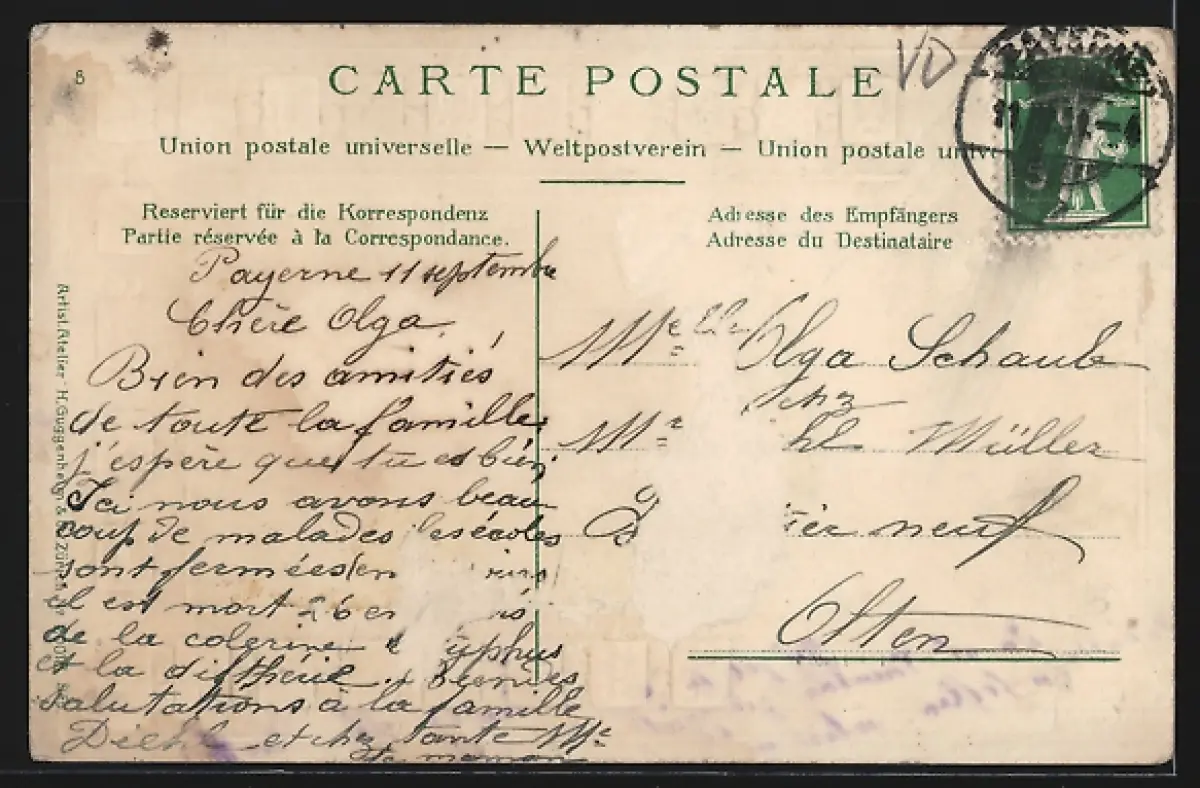 8
CARTE POSTALE
VD
PAYERNE
Union postale universelle — Weltpostverein — Union postale unive
Reserviert für die Korrespondenz
Partie réservée à la Correspondance.
Adresse des Empfängers
Adresse du Destinataire
Payerne 11 septembre
Chère Olga,
Bien des amitiés
de toute la famille,
j'espère que tu es bien,
Ici nous avons beau
coup de malades les écoles
sont fermées
il est mort 26
de la colerine typhus
et la diftherie.
salutations à la famille
Diehl et chez tante
maman
Melle Olga Schaub
chez
Mr Müller
neuf
Olten
Artist. Atelier H. Guggenheim & Zürich